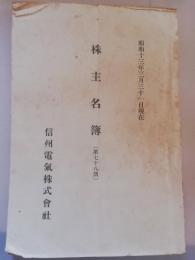 昭和十三年三月三十一日現在
株主名簿
(第七十八期)
信州電氣株式會社